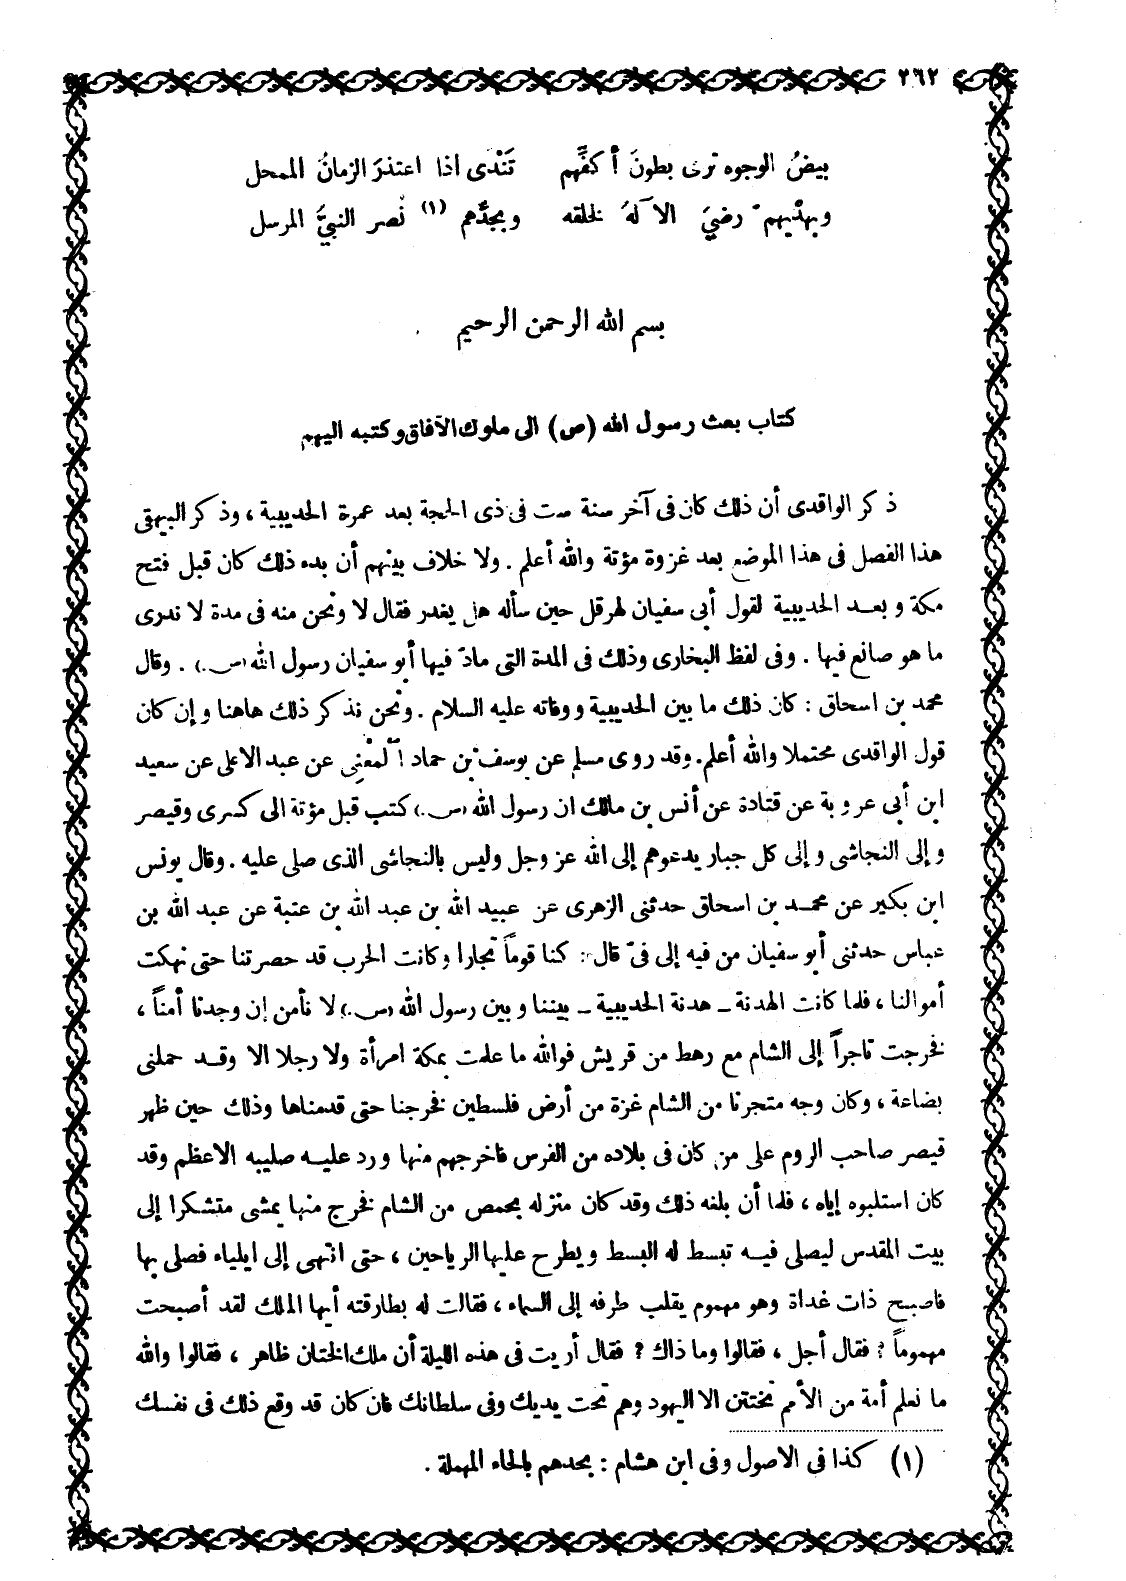 ٢٦٢
بيضُ الوجوه ترى بطونَ أكفِّهم تَنْدى اذا اعتذرَ الزمانُ الممحل
وبهدْيهم رضيَ الآلهُ لخلقه وبجدِّهم (١) نُصر النبيَّ المرسل
بسم الله الرحمن الرحيم
كتاب بعث رسول الله (ص) الى ملوك الآفاق وكتبه اليهم
ذكر الواقدى أن ذلك كان فى آخر سنة ست فى ذى الحجة بعد عمرة الحديبية ، وذكر البيهقى
هذا الفصل فى هذا الموضع بعد غزوة مؤتة والله أعلم . ولا خلاف بينهم أن بدء ذلك كان قبل فتح
مكة وبعد الحديبية لقول أبى سفيان لهرقل حين سأله هل يغدر فقال لا ونحن منه فى مدة لا ندرى
ما هو صانع فيها . وفى لفظ البخارى وذلك فى المدة التى مادّ فيها أبو سفيان رسول الله (س.) . وقال
محمد بن اسحاق : كان ذلك ما بين الحديبية ووفاته عليه السلام . ونحن نذكر ذلك هاهنا وإن كان
قول الواقدى محتملا والله أعلم . وقد روى مسلم عن يوسف بن حماد المعْنِى عن عبد الاعلى عن سعيد
ابن أبى عروبة عن قتادة عن أنس بن مالك ان رسول الله (س.) كتب قبل مؤتة الى كسرى وقيصر
وإلى النجاشى وإلى كل جبار يدعوهم إلى الله عز وجل وليس بالنجاشى الذى صلى عليه . وقال يونس
ابن بكير عن محمد بن اسحاق حدثنى الزهرى عن عبيد الله بن عبد الله بن عتبة عن عبد الله بن
عباس حدثنى أبو سفيان من فيه إلى فىّ قال : كنا قوماً تجارا وكانت الحرب قد حصرتنا حتى نهكت
أموالنا ، فلما كانت الهدنة ـ هدنة الحديبية ـ بيننا وبين رسول الله (س.) لا نأمن إن وجدنا أمناً ،
فخرجت تاجراً إلى الشام مع رهط من قريش فوالله ما علمت بمكة امرأة ولا رجلا الا وقد حملنى
بضاعة ، وكان وجه متجرنا من الشام غزة من أرض فلسطين فخرجنا حتى قدمناها وذلك حين ظهر
قيصر صاحب الروم على من كان فى بلاده من الفرس فاخرجهم منها ورد عليه صليبه الاعظم وقد
كان استلبوه إياه ، فلما أن بلغه ذلك وقد كان منزله بحمص من الشام فخرج منها يمشى متشكرا إلى
بيت المقدس ليصلى فيه تبسط له البسط ويطرح عليها الرياحين ، حتى انتهى إلى ايلياء فصلى بها
فاصبح ذات غداة وهو مهموم يقلب طرفه إلى السماء ، فقالت له بطارقته أيها الملك لقد أصبحت
مهموماً ؟ فقال أجل ، فقالوا وما ذاك ؟ فقال أريت فى هذه الليلة أن ملك الختان ظاهر ، فقالوا والله
ما نعلم أمة من الأمم تختتن الا اليهود وهم تحت يديك وفى سلطانك فان كان قد وقع ذلك فى نفسك
(١) كذا فى الاصول وفى ابن هشام : بحدهم بالحاء المهملة .